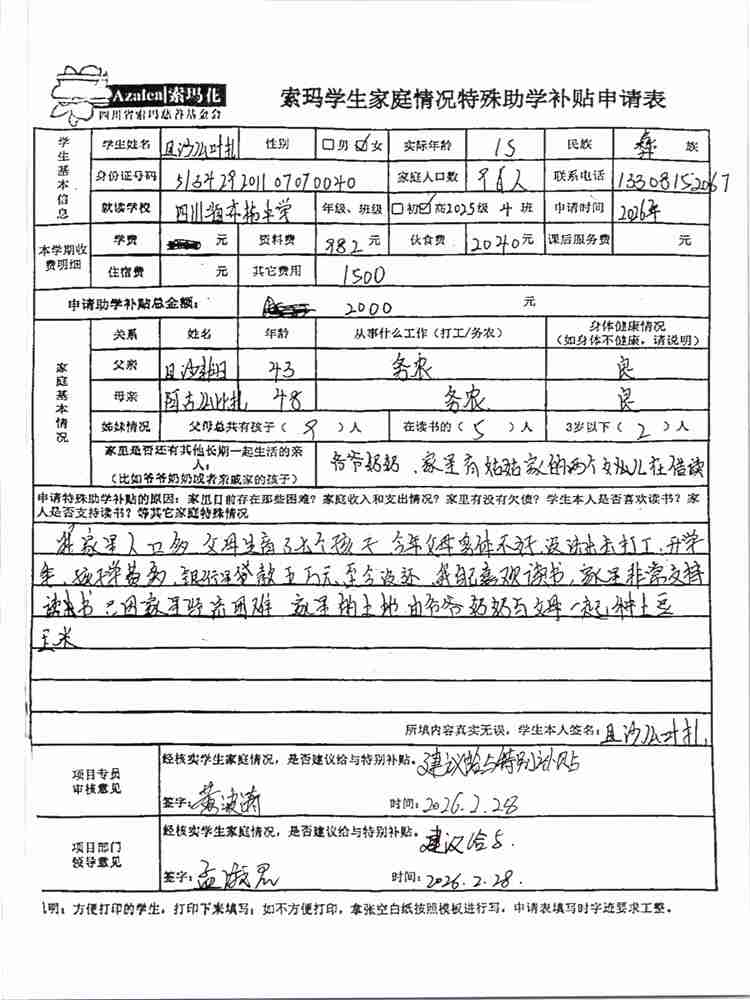 Azalea|索玛花
四川省索玛慈善基金会
索玛学生家庭情况特殊助学补贴申请表
学生基本信息
学生姓名 且沙么叶扎 性别 □男 ☑女 实际年龄 15 民族 彝 族
身份证号码 513429201107070040 家庭人口数 9 人 联系电话 13308152067
就读学校 四川 中学 年级、班级 □初 ☑高2025级 4 班 申请时间 2026年
本学期收费明细
学费 元 资料费 982 元 伙食费 2040 元 课后服务费 元
住宿费 元 其它费用 1500
申请助学补贴总金额: 2000 元
家庭基本情况
关系 姓名 年龄 从事什么工作(打工/务农) 身体健康情况(如身体不健康,请说明)
父亲 且沙 43 务农 良
母亲 阿古么比扎 48 务农 良
姊妹情况 父母总共有孩子( 9 )人 在读书的( 5 )人 3岁以下( 2 )人
家里是否还有其他长期一起生活的亲人:
(比如爷爷奶奶或者亲戚家的孩子)
爷爷奶奶,家里有姑姑家的两个女儿在借读
申请特殊助学补贴的原因:家里目前存在那些困难?家庭收入和支出情况?家里有没有欠债?学生本人是否喜欢读书?家
人是否支持读书?等其它家庭特殊情况
我家里人口多,父母生育了七个孩子,今年父母身体不好,没法出去打工,开学
需费多,银行里贷款五万元,至今没还,我自己喜欢读书,家里非常支持
读书 只因家里经济困难 家里的土地 由爷爷奶奶与父母一起种土豆
玉米
所填内容真实无误,学生本人签名:且沙么叶扎
项目专员审核意见
经核实学生家庭情况,是否建议给与特别补贴。建议给与特别补贴
签字: 黄波 时间:2026.2.28
项目部门领导意见
经核实学生家庭情况,是否建议给与特别补贴。建议给与.
签字: 孟 时间:2026.2.28.
明:方便打印的学生,打印下来填写;如不方便打印,拿张空白纸按照模板进行写,申请表填写时字迹要求工整。